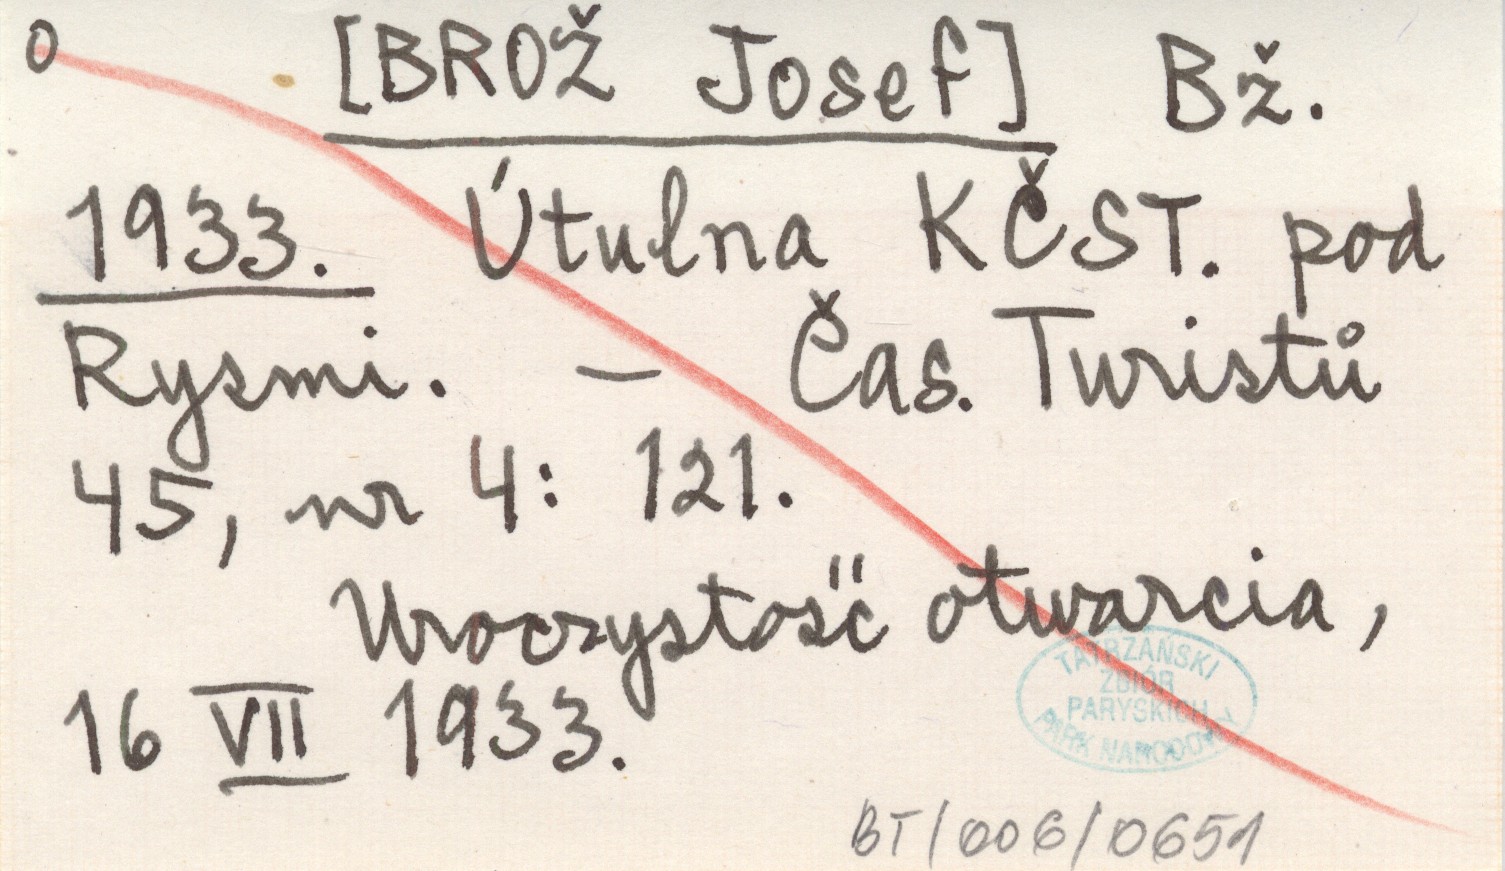 0 [BROŽ Josef] Bž.
1933. Útulna KČST. pod
Rysmi. — Čas. Turistů
45, nr 4: 121.
Uroczystość otwarcia,
16 VII 1933.
TATRZAŃSKI
ZBIÓR
PARYSKICH
PARK NARODOWY
BT/006/0651